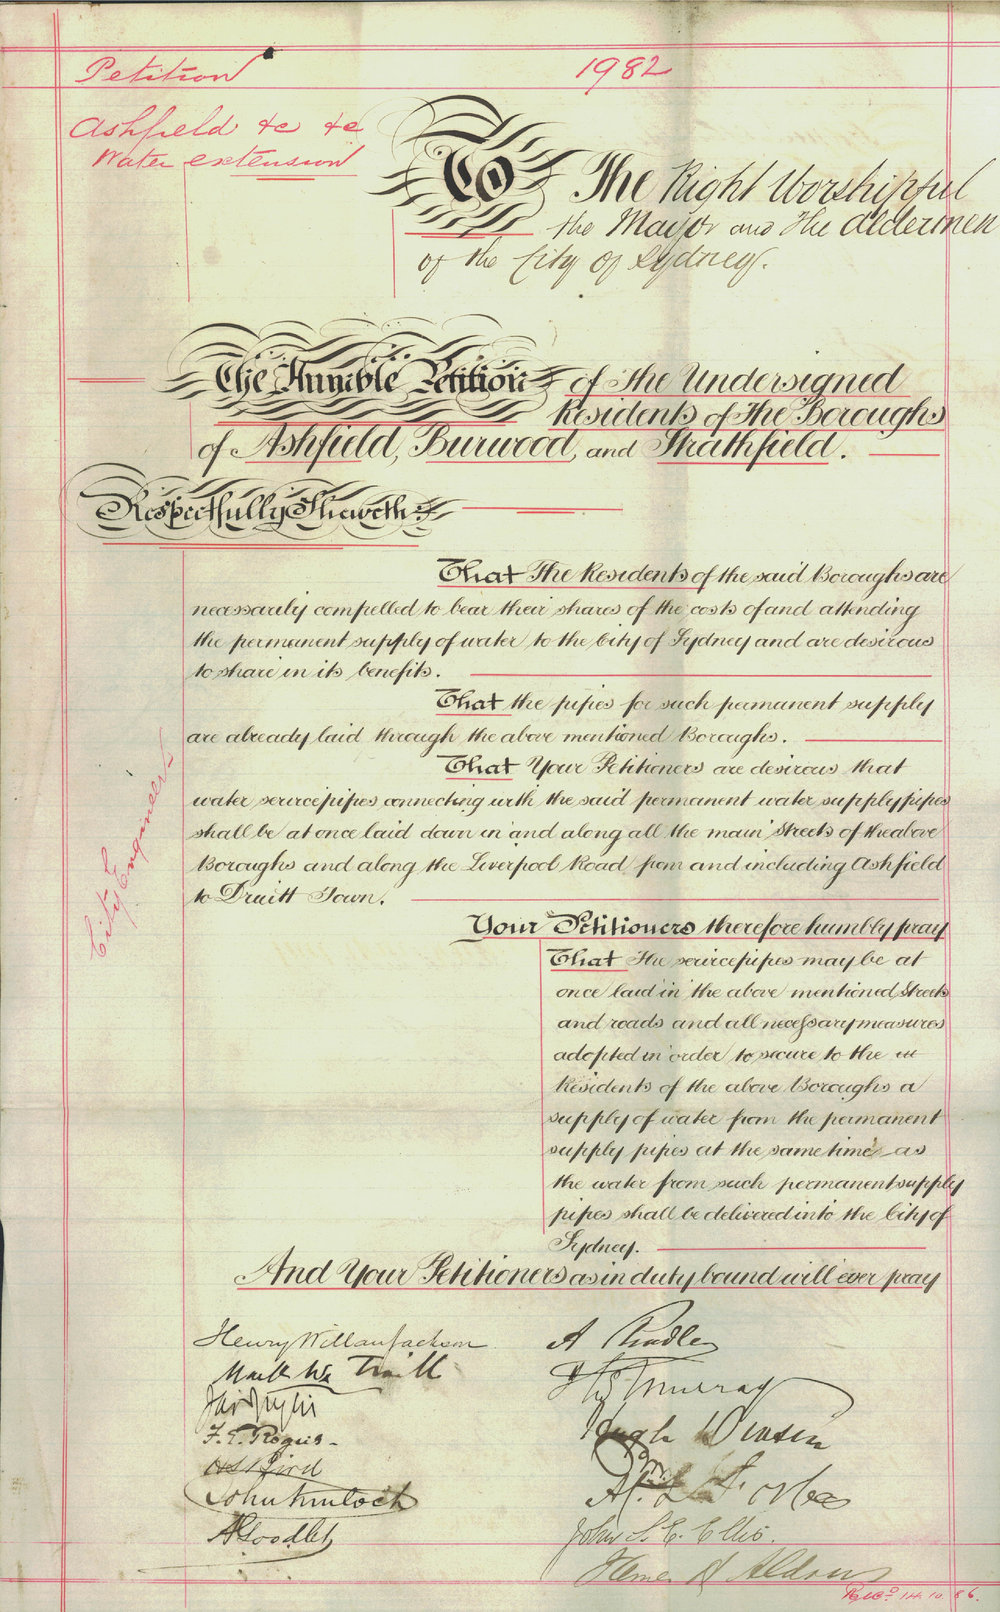 Petition
1982
Ashfield &c &c
Water extension
To The Right Worshipful
the Mayor and The Aldermen
of the City of Sydney.
The Humble Petition of The Undersigned
Residents of The Boroughs
of Ashfield, Burwood, and Strathfield.
Respectfully Sheweth:
That The Residents of the said Boroughs are
necessarily compelled to bear their shares of the costs of and attending
the permanent supply of water to the City of Sydney and are desirous
to share in its benefits.
That the pipes for such permanent supply
are already laid through the above mentioned Boroughs.
That Your Petitioners are desirous that
water service pipes connecting with the said permanent water supply pipes
shall be at once laid down in and along all the main Streets of the above
Boroughs and along the Liverpool Road from and including Ashfield
to Druitt Town.
City Engineer
Your Petitioners therefore humbly pray
That The service pipes may be at
once laid in the above mentioned Streets
and roads and all necessary measures
adopted in order to secure to the
Residents of the above Boroughs a
supply of water from the permanent
supply pipes at the same time as
the water from such permanent supply
pipes shall be delivered into the City of
Sydney.
And Your Petitioners as in duty bound will ever pray
Henry Willan Jackson
A
Mark
Murray
Hugh
F. E. Rogers
Bird
Forbes
John Kinloch
John S. E. Ellis.
A Goodlet
James
Rec'd 14.10.86.